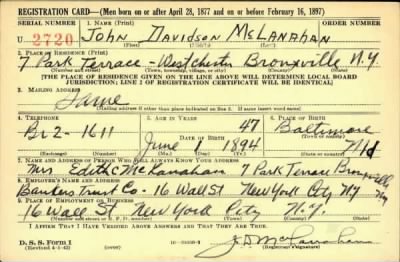 REGISTRATION CARD—(Men born on or after April 28, 1877 and on or before February 16, 1897)
SERIAL NUMBER 1. NAME (Print) ORDER NUMBER
U 2720 John Davidson McLanahan
(First) (Middle) (Last)
2. PLACE OF RESIDENCE (Print)
7 Park Terrace - Westchester Bronxville N.Y.
(Number and street) (Town, township, village, or city) (County) (State)
[THE PLACE OF RESIDENCE GIVEN ON THE LINE ABOVE WILL DETERMINE LOCAL BOARD
JURISDICTION; LINE 2 OF REGISTRATION CERTIFICATE WILL BE IDENTICAL]
3. MAILING ADDRESS
Same
(Mailing address if other than place indicated on line 2. If same insert word same)
4. TELEPHONE 5. AGE IN YEARS 6. PLACE OF BIRTH
Br 2-1611 47 Baltimore
DATE OF BIRTH
June 1894 Md
7. NAME AND ADDRESS OF PERSON WHO WILL ALWAYS KNOW YOUR ADDRESS
Mrs Edith C McLanahan 7 Park Terrace Bronxville NY
8. EMPLOYER'S NAME AND ADDRESS
Bankers Trust Co - 16 Wall St New York City NY
9. PLACE OF EMPLOYMENT OR BUSINESS
16 Wall St New York City N.Y.
(Number and street or R. F. D. number) (Town) (County) (State)
I AFFIRM THAT I HAVE VERIFIED ABOVE ANSWERS AND THAT THEY ARE TRUE.
D. S. S. Form 1
(Revised 4-1-42) J D McLanahan